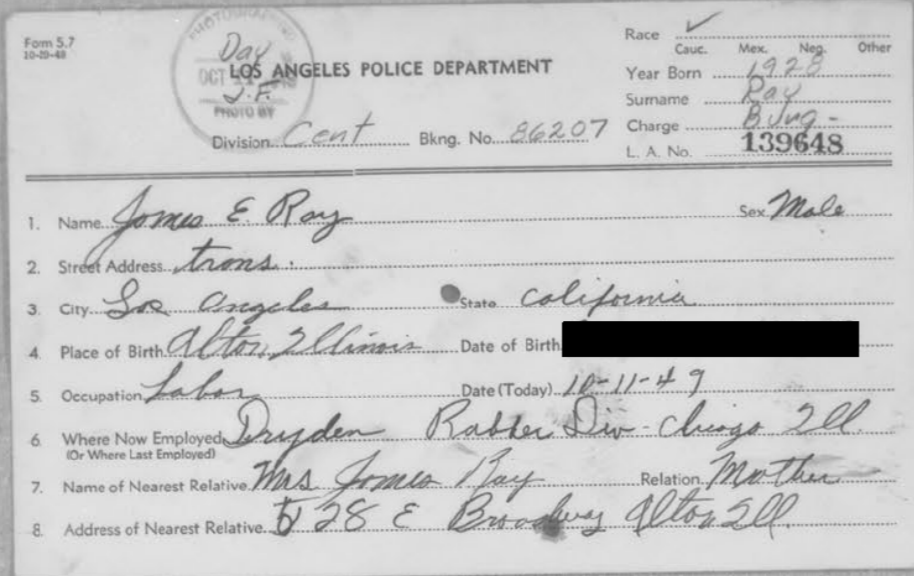 Form 5.7
10-29-48
PHOTOGRAPHED
Day
OCT 11
J.F.
PHOTO BY
LOS ANGELES POLICE DEPARTMENT
Division Cent Bkng. No. 86207
Race ✓
Cauc. Mex. Neg. Other
Year Born 1928
Surname Ray
Charge Burg-
L. A. No. 139648
1. Name James E. Ray Sex Male
2. Street Address trans.
3. City Los Angeles State California
4. Place of Birth Alton Illinois Date of Birth
5. Occupation Labor Date (Today) 10-11-49
6. Where Now Employed Dryden Rubber Div - Chicago Ill.
(Or Where Last Employed)
7. Name of Nearest Relative Mrs James Ray Relation Mother
8. Address of Nearest Relative 528 E Broadway Alton Ill.